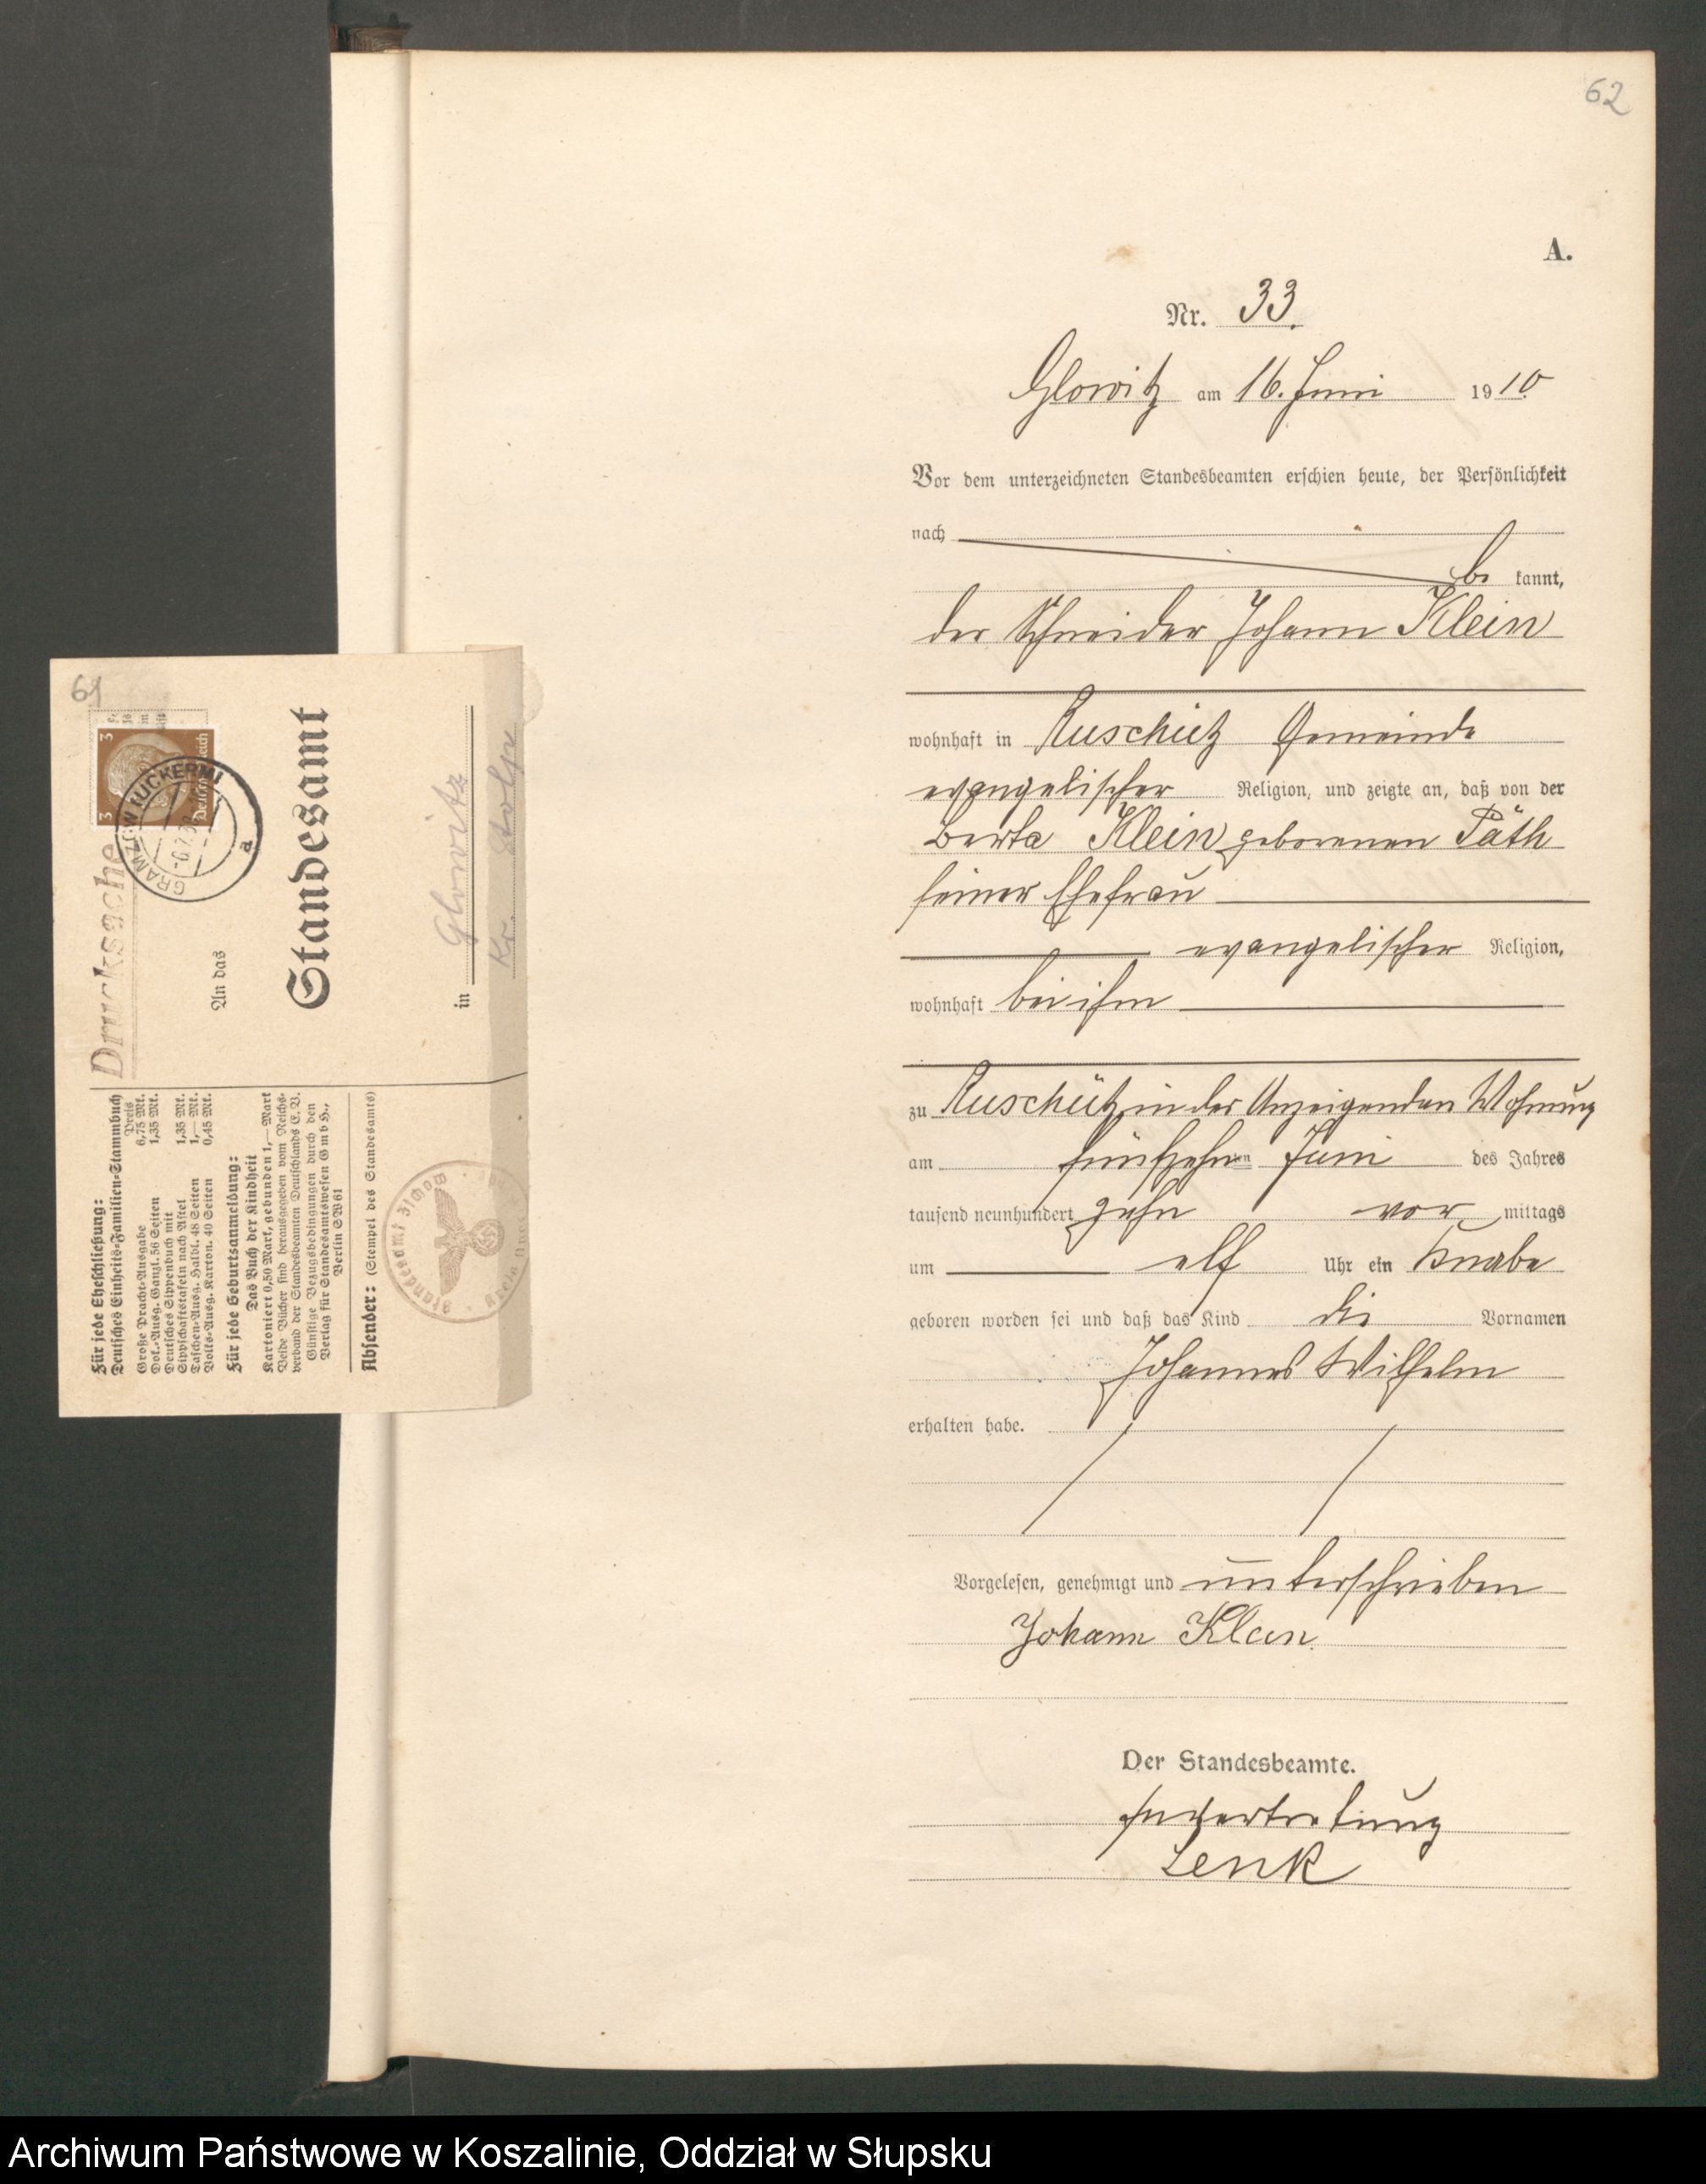 62
A.
Nr. 33.
Glowitz am 16. Juni 1910.
Vor dem unterzeichneten Standesbeamten erschien heute, der Persönlichkeit
nach
be kannt,
der Schneider Johann Klein
wohnhaft in Ruschütz Gemeinde
evangelischer Religion, und zeigte an, daß von der
Berta Klein geborenen Päth
seiner Ehefrau
evangelischer Religion,
wohnhaft bei ihm
zu Ruschütz in des Anzeigenden Wohnung
am fünfzehnten Juni des Jahres
tausend neunhundert zehn vor mittags
um elf Uhr ein Knabe
geboren worden sei und daß das Kind die Vornamen
Johannes Wilhelm
erhalten habe.
Vorgelesen, genehmigt und unterschrieben
Johann Klein
Der Standesbeamte.
In Vertretung
Lenk
61
3 3
Deutsches Reich
GRAMZOW (UCKERM)
a
Drucksache
An das
Standesamt
in Glowitz
Kr. Stolp
Für jede Eheschließung:
Deutsches Einheits-Familien-Stammbuch
Preis
Große Pracht-Ausgabe 6,75 Mk.
Dok.-Ausg. Ganzl. 56 Seiten 1,35 Mk.
Deutsches Sippenbuch mit
Sippschaftstafeln nach Astel 1,35 Mk.
Taschen-Ausg. Halbl. 48 Seiten 1,— Mk.
Volks-Ausg. Karton. 40 Seiten 0,45 Mk.
Für jede Geburtsanmeldung:
Das Buch der Kindheit
Kartoniert 0,50 Mark, gebunden 1,— Mark
Beide Bücher sind herausgegeben vom Reichs-
verband der Standesbeamten Deutschlands E. V.
Günstige Bezugsbedingungen durch den
Verlag für Standesamtswesen G m b H.,
Berlin SW 61
Absender: (Stempel des Standesamts)
Standesamt
Archiwum Państwowe w Koszalinie, Oddział w Słupsku